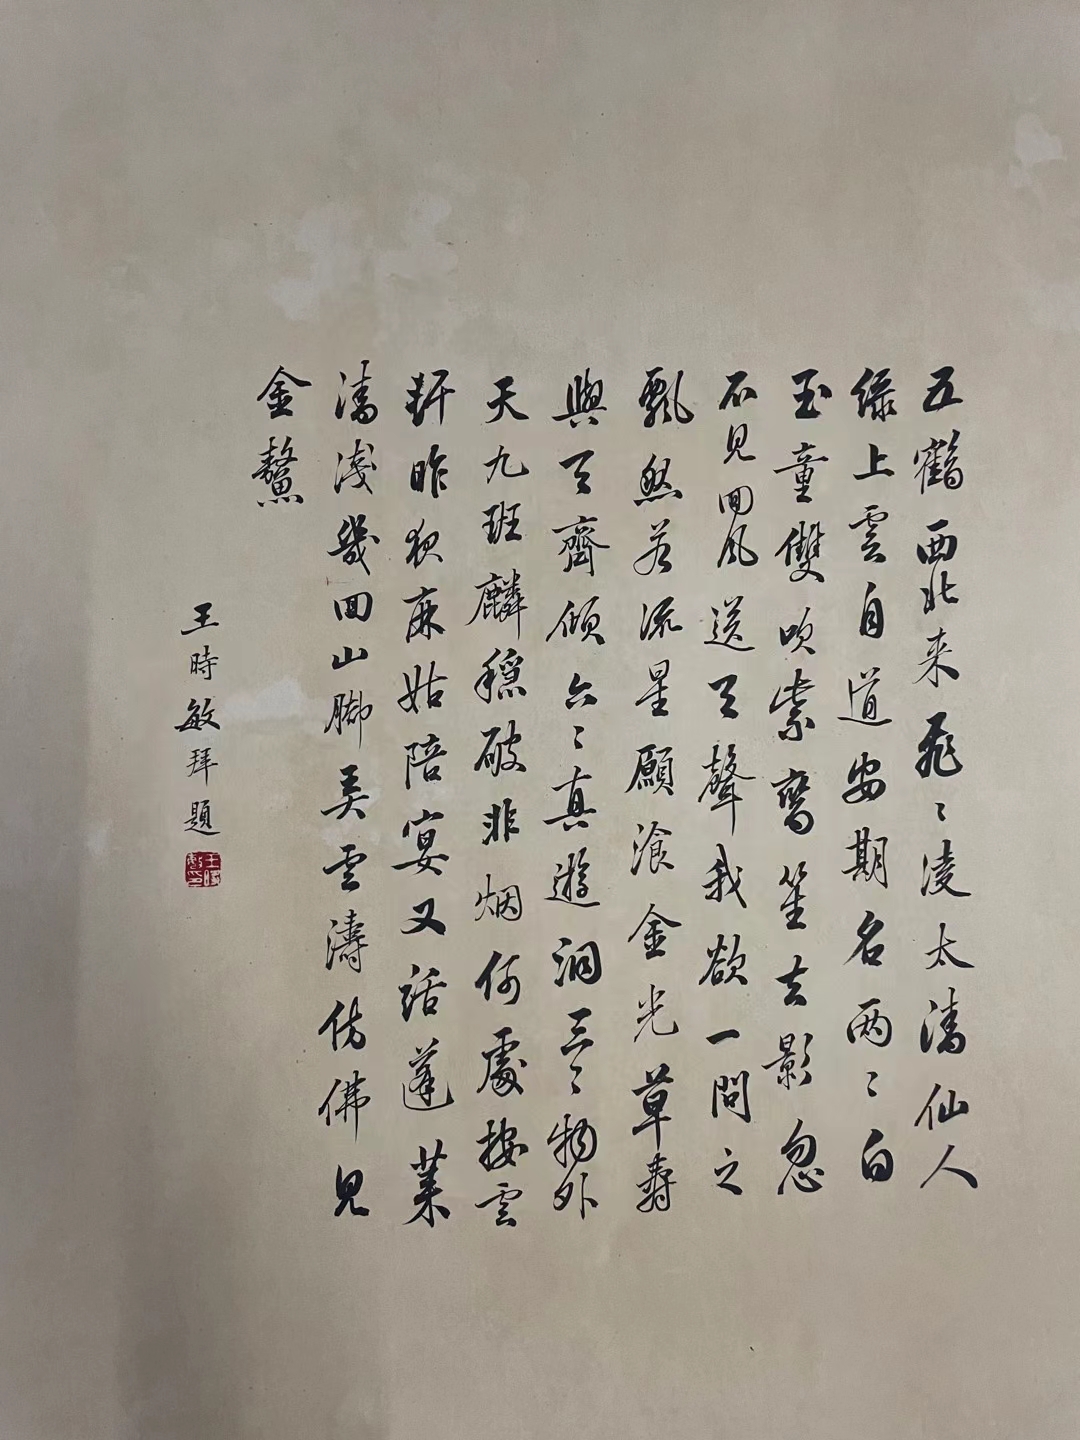 五鶴西北来飛〻凌太清仙人
緑上雲自道安期名两〻白
玉童雙吹紫鸞笙去影忽
不見回風送天聲我欲一問之
飄然若流星願飡金光草壽
與天齊傾六〻真遊洞三〻物外
天九班麟穩破非烟何處按雲
軒昨夜麻姑陪宴又話蓬萊
清淺幾回山脚弄雲濤仿佛見
金鰲
王時敏拜題
王時敏印